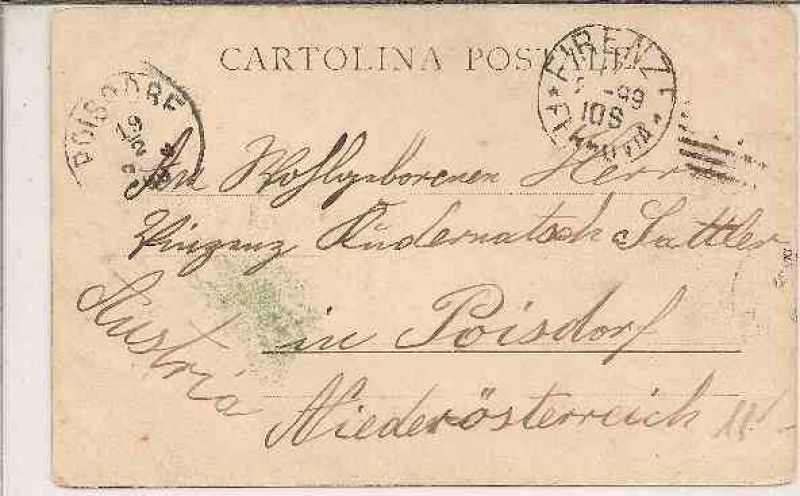 CARTOLINA POSTALE
FIRENZE
-99
10S
POISDORF
Wohlgeborenen Herr
Vinzenz Kudernatsch Sattler
in Poisdorf
Austria
Niederösterreich